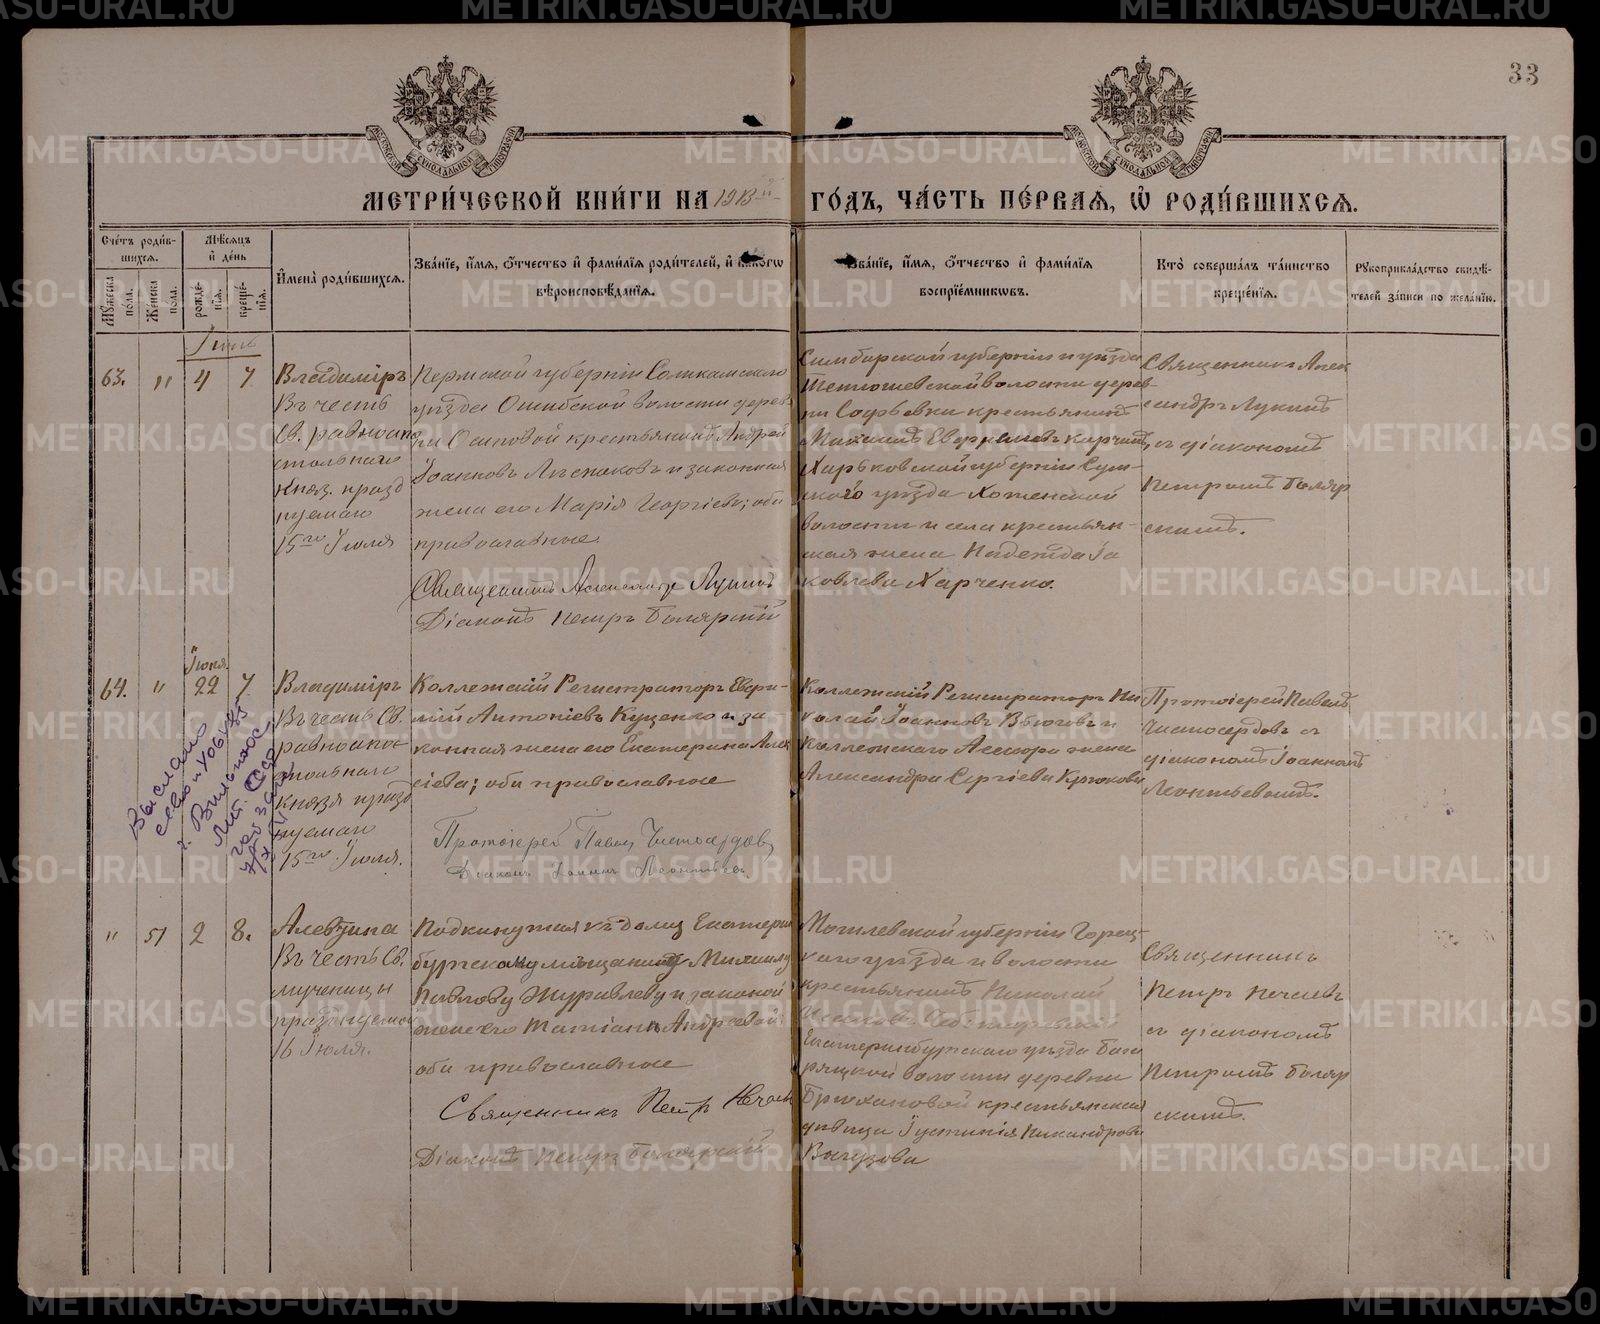 33
МЕТРИ́ЧЕСКОЙ КНИ́ГИ НА 1913 ГО́ДЪ, ЧА́СТЬ ПЕ́РВАЯ, Ѡ҆ РОДИ́ВШИХСЯ.
Сче́тъ роди́вшихся.
Мѣ́сяцъ и҆ де́нь
Мꙋ́жеска пола.
Же́нска пола.
рожде́нїя.
креще́нїя.
И҆мена̀ роди́вшихся.
Зва́нїе, и҆́мя, ѻ҆́тчество и҆ фами́лїя роди́телей, и҆ како́гѡ вѣроисповѣ́данїя.
Зва́нїе, и҆́мя, ѻ҆́тчество и҆ фами́лїя воспрїе́мникѡвъ.
Кто̀ соверша́лъ та́инство креще́нїя.
Рꙋкоприкла́дство свидѣ́телей за́писи по жела́нїю.
Іюль
63. " 4 7
Владимiръ
Въ честь
Св. равноапо
стольнаго
Княз. празд
нуемаго
15го Іюля
Пермской губернiи Соликамскаго
уѣзда Ошибской волости дерев
ни Осиповой крестьянинъ Андрей
Іоанновъ и законная
жена его Марiя Георгiева; оба
православные.
Священникъ Александръ Лукинъ
Дiаконъ Петръ Боляркiй
Симбирской губернiи и уѣзда
Тетюшевской волости дерев-
ни Софьевки крестьянинъ
Михаилъ
Харьковской губернiи Сум-
скаго уѣзда Хотенской
волости и села крестьян-
ская жена Надежда Іа
ковлева Харченко.
Священникъ Алек
сандръ Лукинъ
съ дiакономъ
Петромъ Боляр
скимъ.
64. " Іюня. 22 7
Владимiръ
Въ честь Св.
равноапос
тольнаго
Князя празд
нуемаго
15го Іюля.
Выслано
св-во и
г. Вильнюс
Лит. ССР
Коллежскiй Регистраторъ Евфи-
мiй Антонiевъ Куценко и за
конная жена его Екатерина Алек
сiева; оба православные
Протоiерей Павелъ Чистосердовъ
Дiаконъ Іоаннъ Леонтьевъ
Коллежскiй Регистраторъ Ни
колай Іоанновъ Вьюговъ и
Коллежскаго Ассесора жена
Александра Сергiева Крюкова
Протоiерей Павелъ
Чистосердовъ съ
дiакономъ Іоанномъ
Леонтьевымъ.
" 51 2 8.
Алевтина
Въ честь Св.
мученицы
празднуемой
16 Іюля.
Подкинутая къ дому Екатерин
бургскому мѣщанину Михаилу
Павлову Журавлеву и законой
жене его Татiанѣ Андреевой
оба православные
Священникъ Петръ Нечаевъ
Дiаконъ Петръ Боляркiй
Могилевской губернiи Горец-
каго уѣзда и волости
крестьянинъ Николай
Екатеринбургскаго уѣзда Бага
ряцкой волости деревни
Брюхановой крестьянская
дѣвица Іустинiя Никандрова
Вагузова
Священникъ
Петръ Нечаевъ
съ дiакономъ
Петромъ Боляр
скимъ.
METRIKI.GASO-URAL.RU